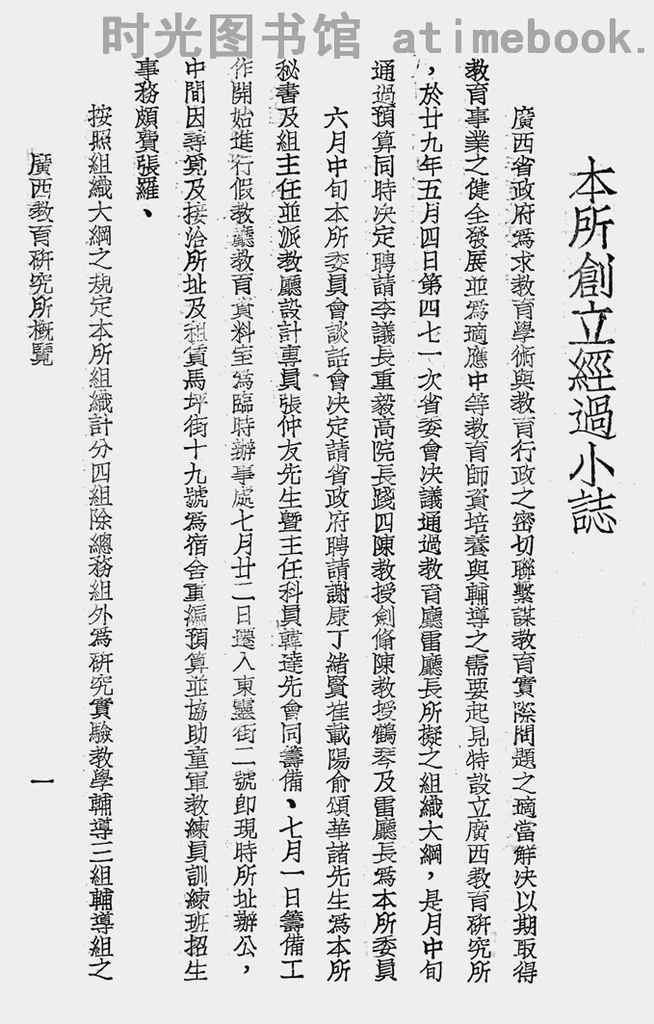 时光图书馆 atimebook.
本所創立經過小誌
廣西省政府爲求教育學術與教育行政之密切聯繫謀教育實際問題之適當解决以期取得
教育事業之健全發展並爲適應中等教育師資培養與輔導之需要起見特設立廣西教育研究所
，於廿九年五月四日第四七一次省委會决議通過教育廳雷廳長所擬之組織大綱，是月中旬
通過預算同時决定聘請李議長重毅高院長踐四陳教授劍脩陳教授鶴琴及雷廳長爲本所委員
六月中旬本所委員會談話會决定請省政府聘請謝康丁緒賢崔載陽俞頌華諸先生爲本所
秘書及組主任並派教廳設計專員張仲友先生暨主任科員韓達先會同籌備、七月一日籌備工
作開始進行假教廳教育資料室爲臨時辦事處七月廿二日遷入東靈街二號卽現時所址辦公，
中間因尋覓及接洽所址及租賃馬坪街十九號爲宿舍重編預算並協助童軍教練員訓練班招生
事務頗費張羅、
按照組織大綱之規定本所組織計分四組除總務組外爲研究實驗教學輔導三組輔導組之
廣西教育研究所概覽
一